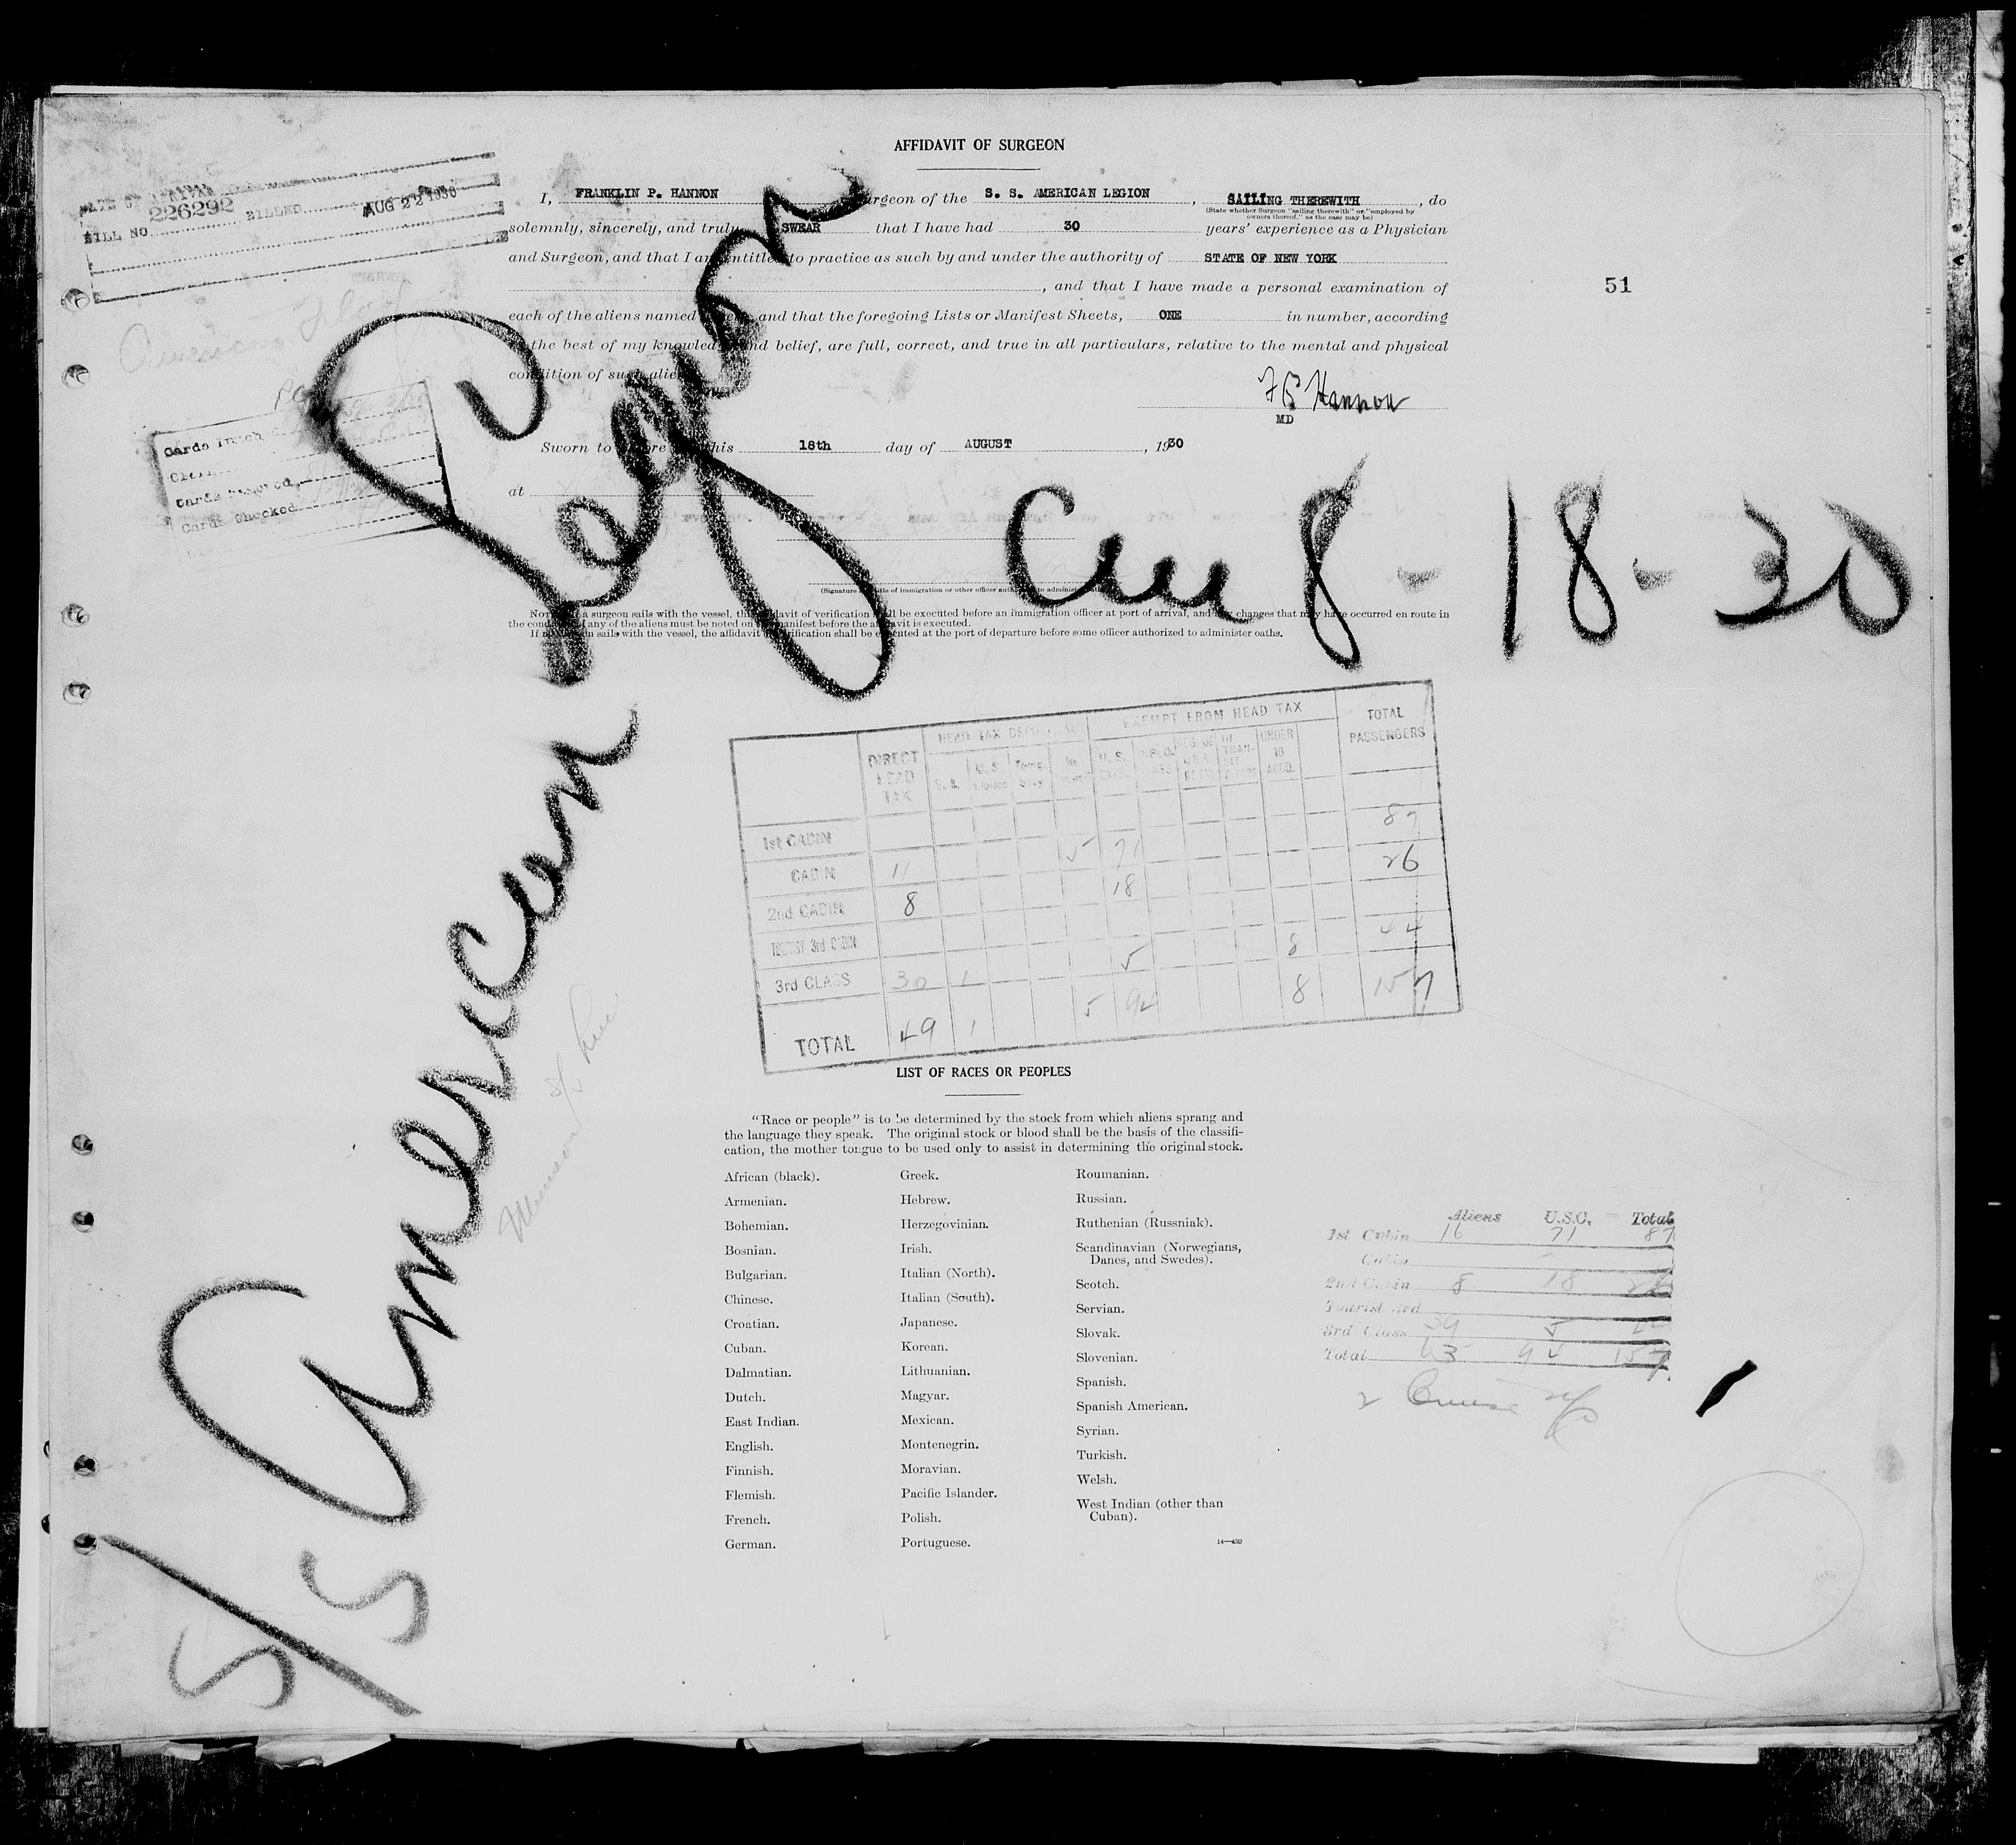 AFFIDAVIT OF SURGEON
I, FRANKLIN P. HANNON urgeon of the S. S. AMERICAN LEGION, SAILING THEREWITH, do
(State whether Surgeon "sailing therewith" or "employed by
owners thereof," as the case may be)
solemnly, sincerely, and truly SWEAR that I have had 30 years' experience as a Physician
and Surgeon, and that I am entitled to practice as such by and under the authority of STATE OF NEW YORK
, and that I have made a personal examination of
each of the aliens named and that the foregoing Lists or Manifest Sheets, ONE in number, according
the best of my knowledge and belief, are full, correct, and true in all particulars, relative to the mental and physical
condition of such aliens
F P Hannon
MD
Sworn to before this 18th day of AUGUST, 1930
at
(Signature of immigration or other officer authorized to administer
Note a surgeon sails with the vessel, the affidavit of verification shall be executed before an immigration officer at port of arrival, and any changes that may have occurred en route in
the condition of any of the aliens must be noted on the manifest before the affidavit is executed.
If no surgeon sails with the vessel, the affidavit of verification shall be executed at the port of departure before some officer authorized to administer oaths.
226292 BILLED AUG 22 1930
BILL NO.
American
Cards Checked
51
S/S American Legion
8 - 18 - 30
DIRECT HEAD TAX
EXEMPT FROM HEAD TAX
TOTAL PASSENGERS
UNDER 16 ACCO.
1st CABIN 87
CABIN 11 5 71 26
2nd CABIN 8 18
TOURIST 3rd CABIN 44
3rd CLASS 30 1 5 8
TOTAL 49 1 5 94 8 157
Munson S/S Line
LIST OF RACES OR PEOPLES
"Race or people" is to be determined by the stock from which aliens sprang and
the language they speak. The original stock or blood shall be the basis of the classifi-
cation, the mother tongue to be used only to assist in determining the original stock.
African (black).
Armenian.
Bohemian.
Bosnian.
Bulgarian.
Chinese.
Croatian.
Cuban.
Dalmatian.
Dutch.
East Indian.
English.
Finnish.
Flemish.
French.
German.
Greek.
Hebrew.
Herzegovinian.
Irish.
Italian (North).
Italian (South).
Japanese.
Korean.
Lithuanian.
Magyar.
Mexican.
Montenegrin.
Moravian.
Pacific Islander.
Polish.
Portuguese.
Roumanian.
Russian.
Ruthenian (Russniak).
Scandinavian (Norwegians,
Danes, and Swedes).
Scotch.
Servian.
Slovak.
Slovenian.
Spanish.
Spanish American.
Syrian.
Turkish.
Welsh.
West Indian (other than
Cuban).
14—430
Aliens U.S.C. Total
1st Cabin 16 71 87
Cabin
2nd Cabin 8 18 26
Tourist 3rd
3rd Class 39 5 44
Total 63 94 157
2 Cruise